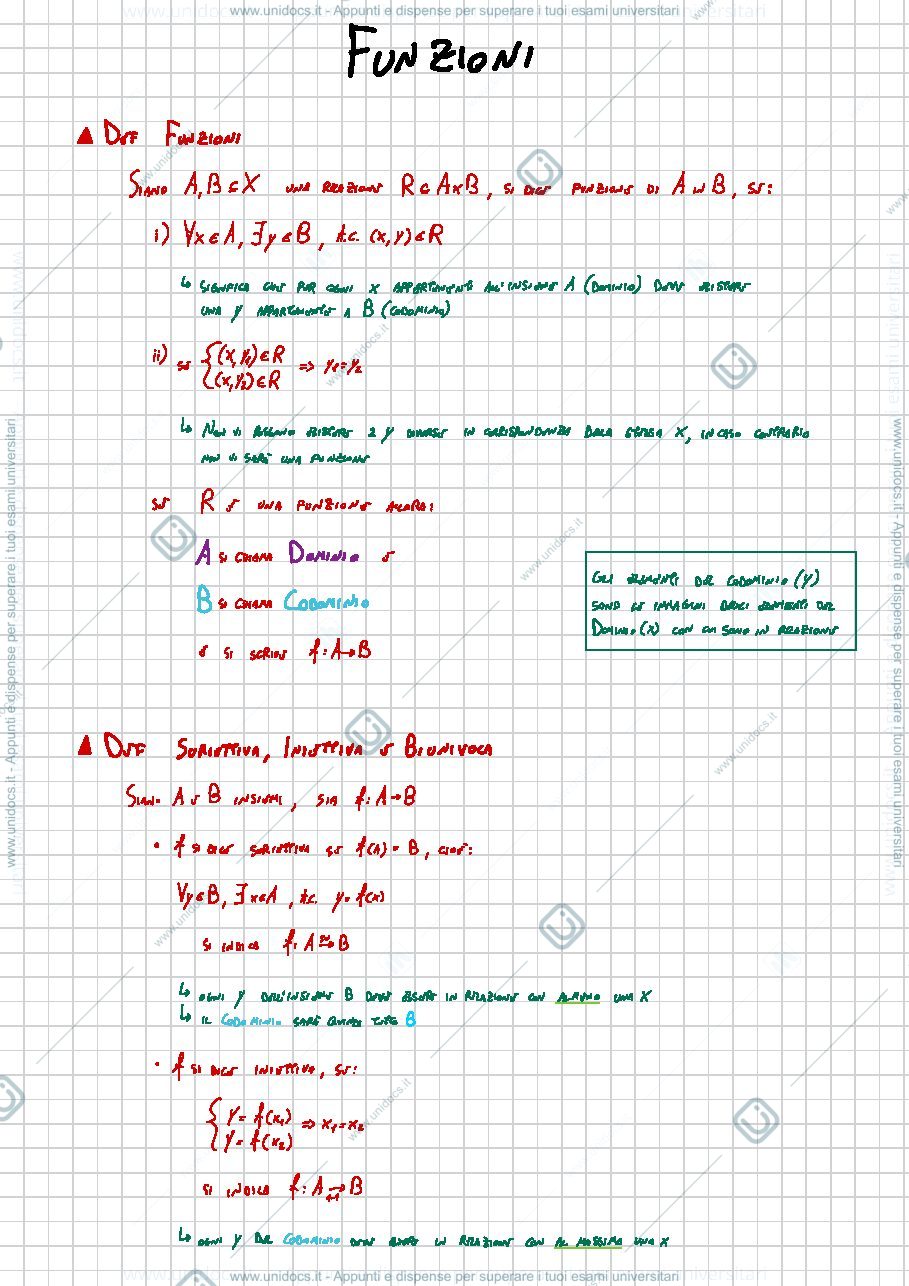 www.unidocs.it - Appunti e dispense per superare i tuoi esami universitari
FUNZIONI
▲ DEF FUNZIONI
SIANO A, B ⊆ X UNA RELAZIONE R ⊆ A×B, SI DICE FUNZIONE DI A IN B, SE:
i) ∀x∈A, ∃y∈B, t.c. (x,y)∈R
↳ SIGNIFICA CHE PER OGNI X APPARTENENTE ALL'INSIEME A (DOMINIO) DEVE ESISTERE
UNA Y APPARTENENTE A B (CODOMINIO)
ii) SE {(x,y₁)∈R
{(x,y₂)∈R ⇒ y₁=y₂
↳ NON VI POSSONO ESISTERE 2 Y DIVERSE IN CORRISPONDENZA DELLA STESSA X, IN CASO CONTRARIO
NON VI SARÀ UNA FUNZIONE
SE R È UNA FUNZIONE ALLORA:
A SI CHIAMA DOMINIO E
B SI CHIAMA CODOMINIO
E SI SCRIVE f: A→B
GLI ELEMENTI DEL CODOMINIO (Y)
SONO LE IMMAGINI DEGLI ELEMENTI DEL
DOMINIO (X) CON CUI SONO IN RELAZIONE
▲ DEF SURIETTIVA, INIETTIVA E BIUNIVOCA
SIANO A E B INSIEMI, SIA f: A→B
• f SI DICE SURIETTIVA SE f(A) = B, CIOÈ:
∀y∈B, ∃x∈A, t.c. y=f(x)
SI INDICA f: A B
↳ OGNI Y DELL'INSIEME B DEVE ESSERE IN RELAZIONE CON ALMENO UNA X
↳ IL CODOMINIO SARÀ QUINDI TUTTO B
• f SI DICE INIETTIVA, SE:
{y = f(x₁)
{y = f(x₂) ⇒ x₁=x₂
SI INDICA f: A B
↳ OGNI Y DEL CODOMINIO DEVE ESSERE IN RELAZIONE CON AL MASSIMO UNA X
www.unidocs.it - Appunti e dispense per superare i tuoi esami universitari